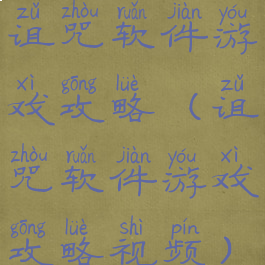 zǔ zhòu ruǎn jiàn yóu
诅咒软件游
xì gōng lüè zǔ
戏攻略（诅
zhòu ruǎn jiàn yóu xì
咒软件游戏
gōng lüè shì pín
攻略视频）